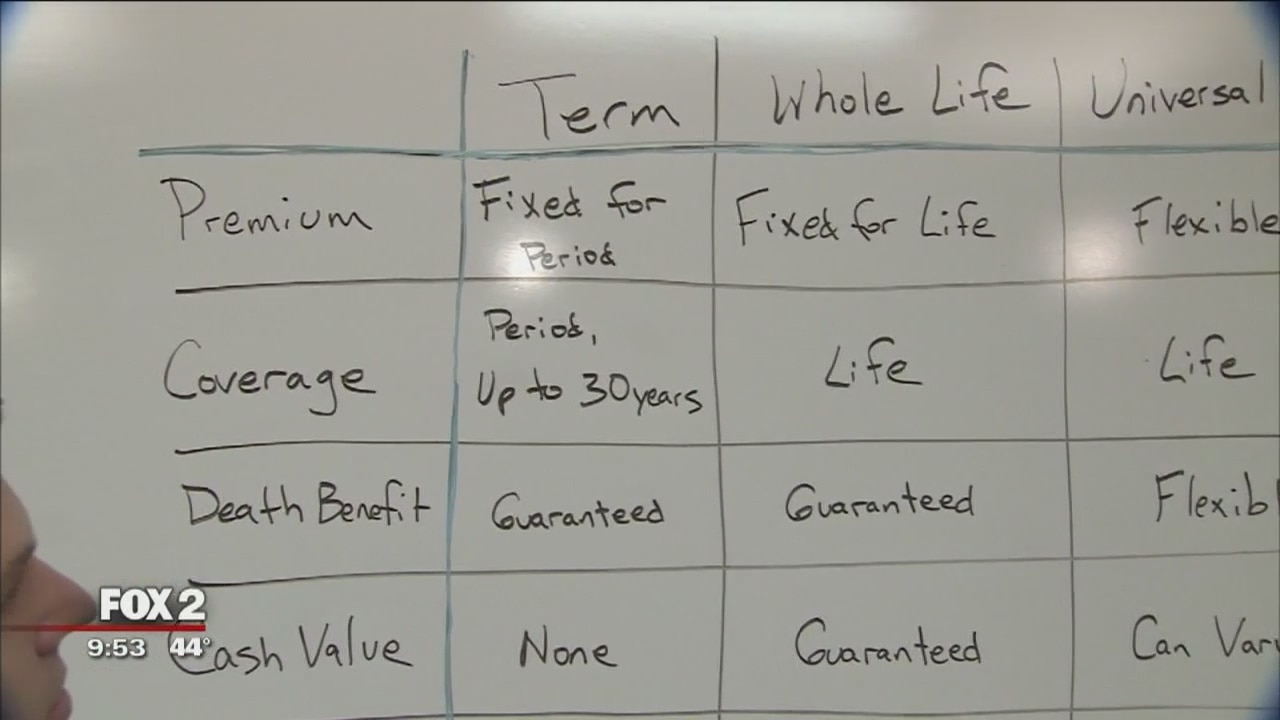 Term
Whole Life
Universal
Premium
Fixed for
Period
Fixed for Life
Flexible
Coverage
Period,
Up to 30 years
Life
Life
Death Benefit
Guaranteed
Guaranteed
Flexib
Cash Value
None
Guaranteed
Can Var
FOX 2
9:53 44°